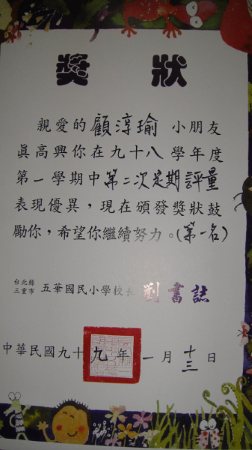 獎狀
親愛的顧淳瑜 小朋友
真高興你在九十八學年度
第一學期中第二次定期評量
表現優異，現在頒發獎狀鼓
勵你，希望你繼續努力。(第一名)
台北縣
三重市 五華國民小學校長 劉書誌
中華民國九十九年一月十三日